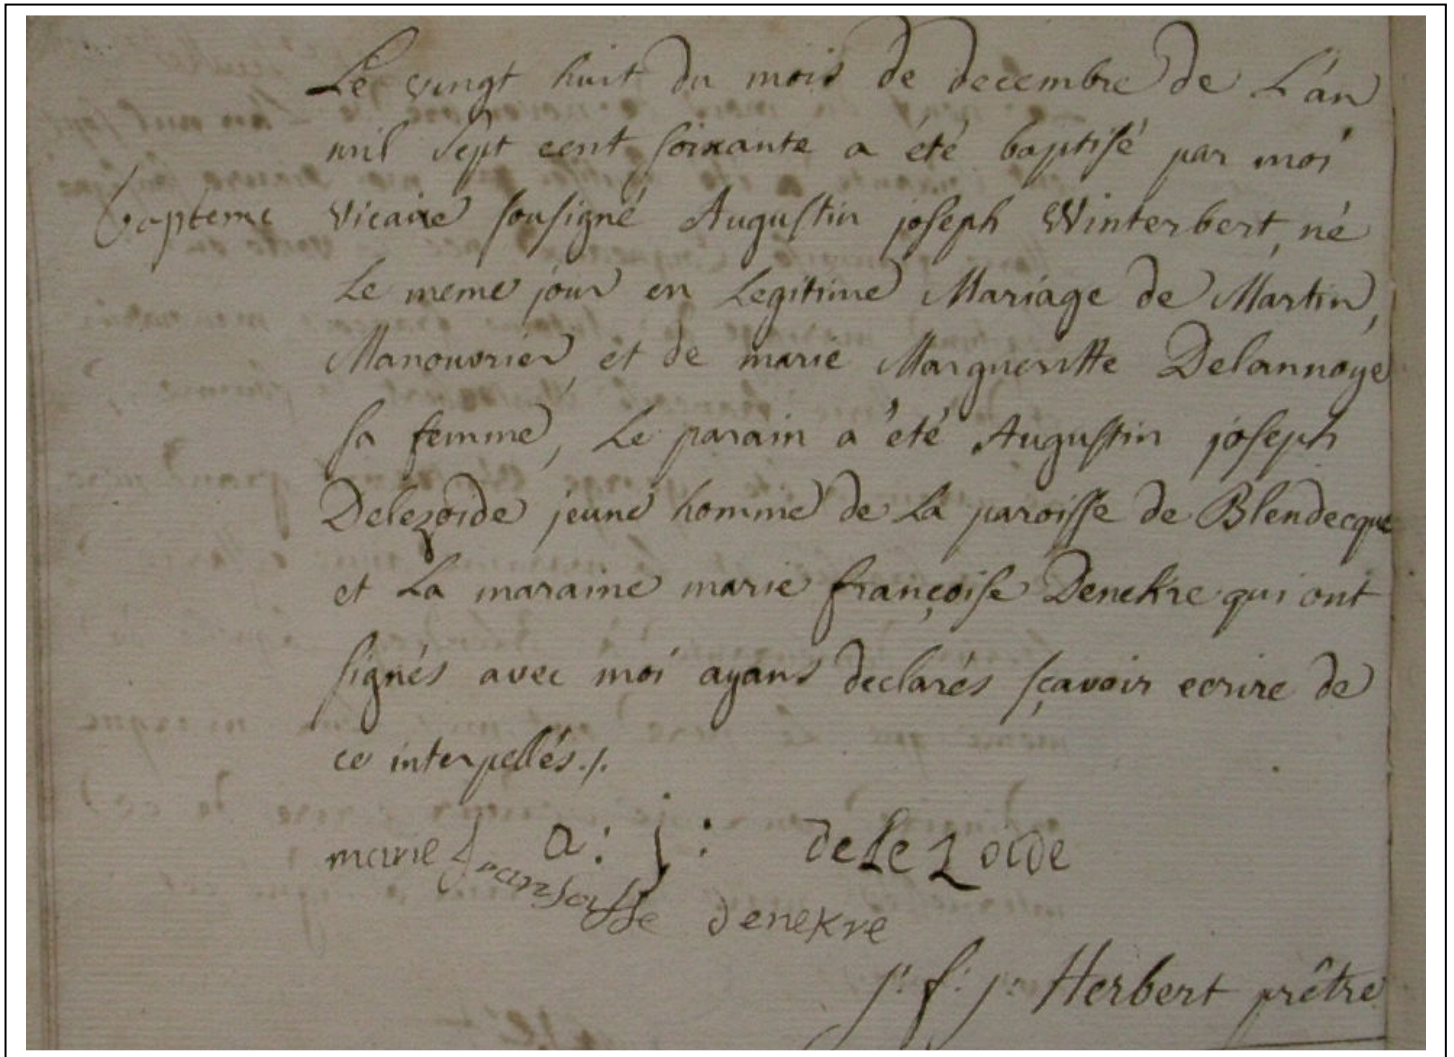 Le vingt huit du mois de decembre de L'an
mil sept cent soixante a été baptisé par moi
bapteme vicaire sousigné Augustin joseph Winterbert, né
Le meme jour en Legitime Mariage de Martin,
Manouvrier, et de marie Margueritte Delannoye
sa femme, Le parain a été Augustin joseph
Delezoide jeune homme de La paroisse de Blendecque
et La maraine marie françoise Denekre qui ont
signés avec moi ayans declarés sçavoir ecrire de
ce interpellés./.
a: j: delezoide
marie fransoisse denekre
j: f: j: Herbert prêtre